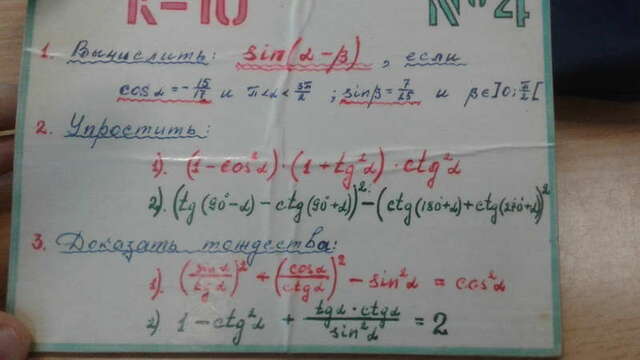 К-10 №4
1. Вычислить: sin(α-β), если
cos α = -15/17 и π<α<3π/2 ; sin β = 7/25 и β∈]0; π/2[
2. Упростить:
1). (1-cos²α)·(1+tg²α)·ctg²α
2). (tg(90°-α) - ctg(90°+α))² - (ctg(180°+α)+ctg(270°+α))²
3. Доказать тождества:
1). (sin α/tg α)² + (cos α/ctg α)² - sin²α = cos²α
2) 1-ctg²α + tgα·ctgα/sin²α = 2